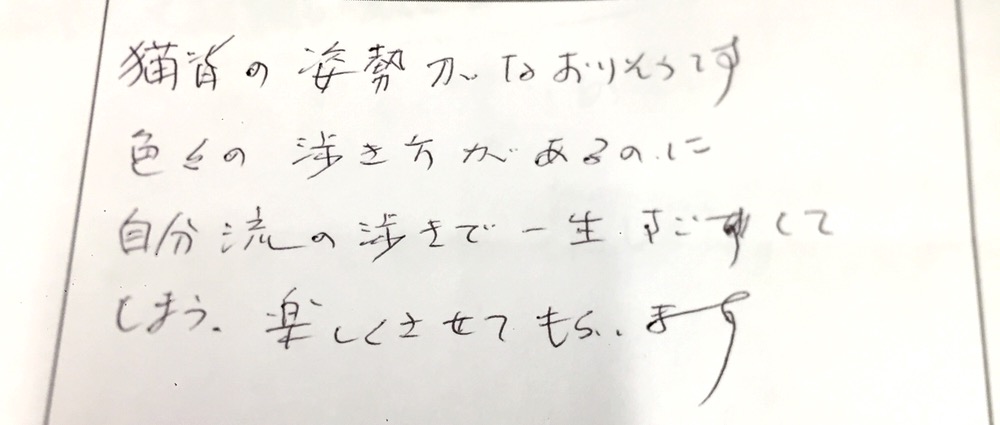 猫背の姿勢がなおりそうです
色々の渉き方があるのに
自分流の渉きで一生すごしてしまう。
楽しくさせてもらいます